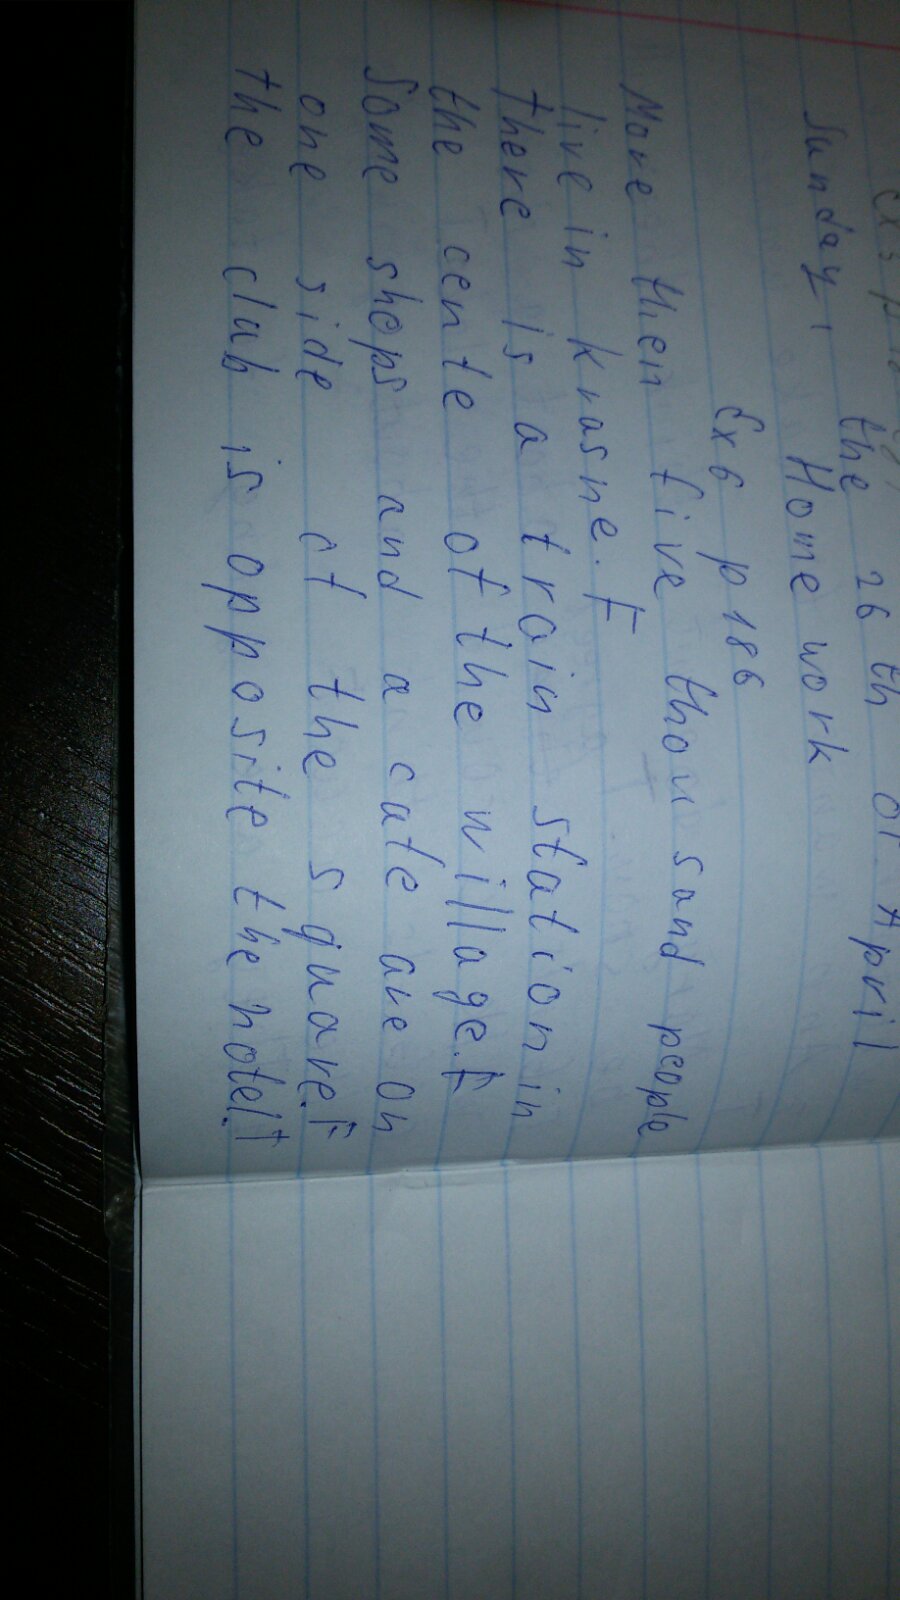 Sunday, the 26 th of April
Home work
Ex 6 p 186
More then five thousand people
live in krasne. F
there is a train station in
the cente of the village. F
Some shops and a cafe are on
one side of the square. F
the club is opposite the hotel. T